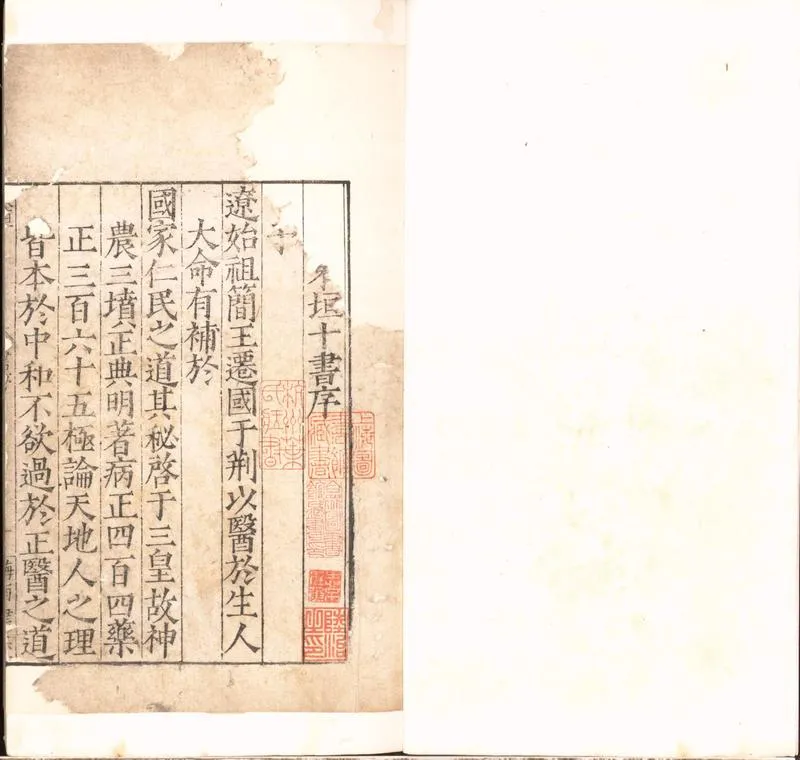 東垣十書序
遼始祖簡王遷國于荆以醫於生人
大命有補於
國家仁民之道其秘啓于三皇故神
農三墳正典明著病正四百四藥
正三百六十五極論天地人之理
皆本於中和不欲過於正醫之道
杭州葉氏藏書